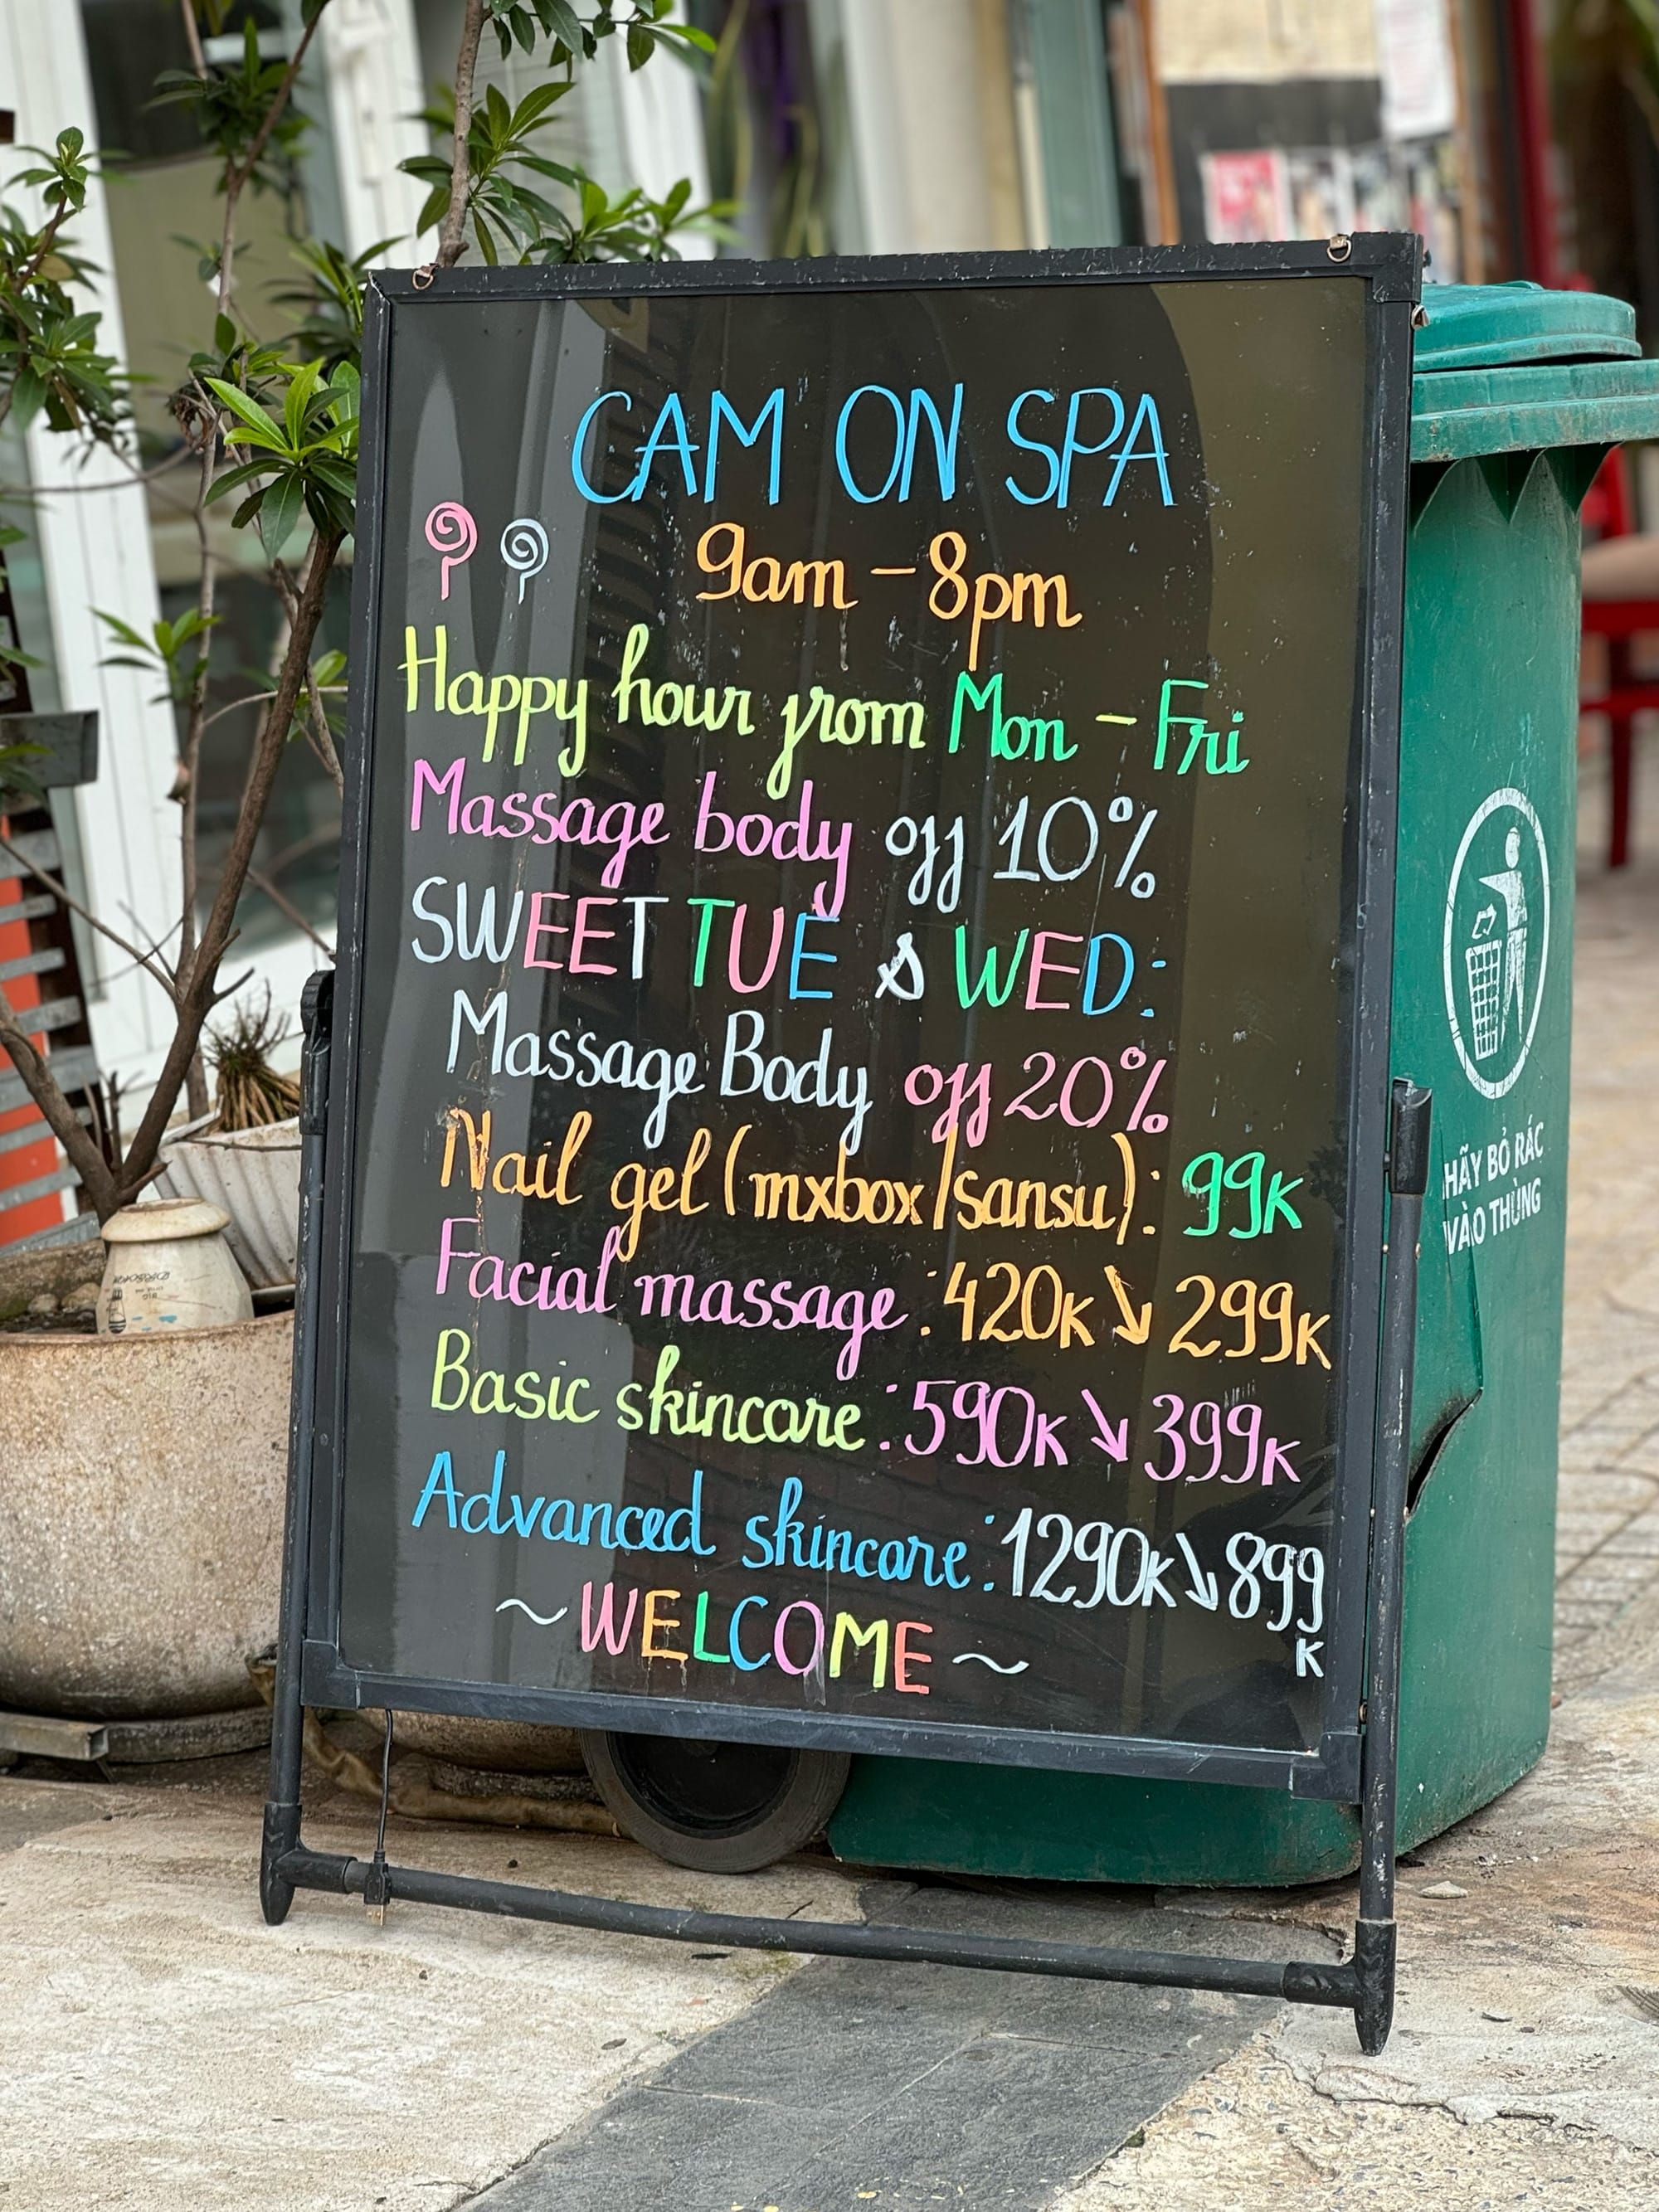 CAM ON SPA
9am - 8pm
Happy hour from Mon - Fri
Massage body off 10%
SWEET TUE & WED:
Massage Body off 20%
Nail gel (mxbox/sansu): 99K
Facial massage: 420K ↘ 299K
Basic skincare: 590K ↘ 399K
Advanced skincare: 1290K ↘ 899
K
~ WELCOME ~
HÃY BỎ RÁC
VÀO THÙNG